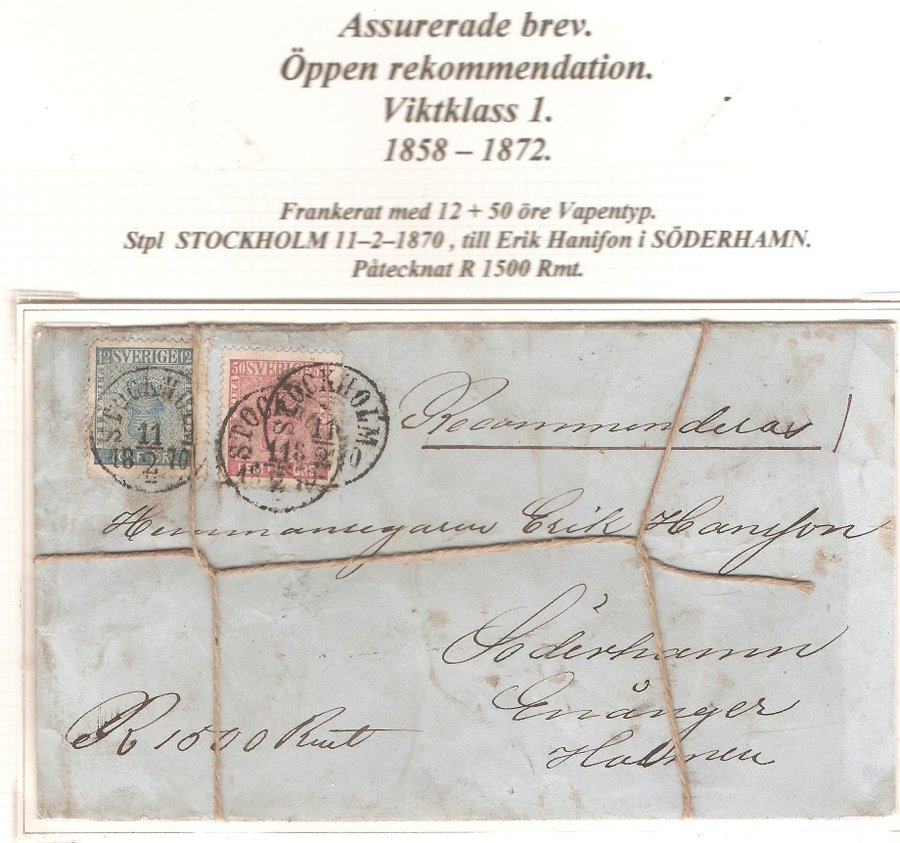 Assurerade brev.
Öppen rekommendation.
Viktklass 1.
1858 – 1872.
Frankerat med 12 + 50 öre Vapentyp.
Stpl STOCKHOLM 11–2–1870 , till Erik Hanifon i SÖDERHAMN.
Påtecknat R 1500 Rmt.
12 SVERIGE 12
STOCKHOLM
11
2
18 70
50 SVERIGE 50
STOCKHOLM
11
2
STOCKHOLM
11
Recommenderas
Hemmansegaren Erik Hansson
Söderhamn
Enånger
Holmen
R 1500 Rmt